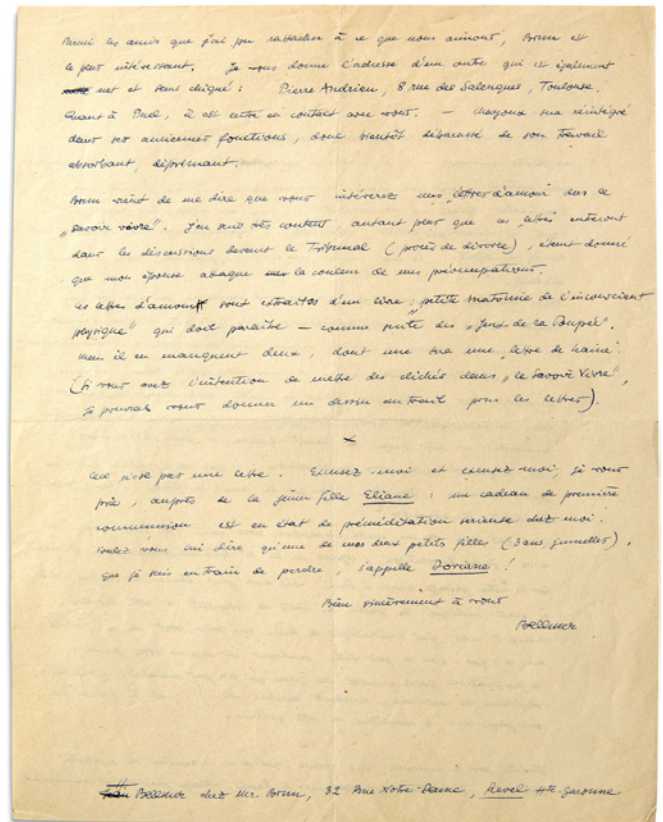 Parmi les amis que j'ai pu rattacher à ce que nous aimons, Brun est
le plus intéressant. Je vous donne l'adresse d'un autre qui est également
net et sans chiqué : Pierre Andrieu, 8 rue des Salenques, Toulouse.
Quant à Puel, il est entré en contact avec vous. — sera réintégré
dans ses anciennes fonctions, donc bientôt débarassé de son travail
absorbant, déprimant.
Brun vient de me dire que vous insérerez mes "lettres d'amour" dans le
"savoir vivre". J'en suis très content, autant plus que ces lettres entreront
dans les discussions devant le Tribunal (procès de divorce), étant donné
que mon épouse attaque la couleur de mes préoccupations.
Les lettres d'amour sont extraites d'un livre : "petite anatomie de l'inconscient
physique" qui doit paraître — comme suite des "Jeux de la Poupée".
Mais il en manquent deux, dont une sera une "lettre de haine".
(Si vous avez l'intention de mettre des clichés dans "le Savoir Vivre",
je pourrais vous donner un dessin au trait pour les lettres).
×
Ceci n'est pas une lettre. Excusez-moi et excusez-moi, je vous
prie, auprès de la jeune fille Eliane : un cadeau de première
communion est en état de préméditation sérieuse chez moi.
Voulez vous lui dire qu'une de mes deux petites filles (3 ans jumelles),
que je suis en train de perdre, s'appelle Doriane !
Bien sincèrement à vous
Bellmer
Bellmer chez Mr. Brun, 32 Rue Notre-Dame, Revel Hte-Garonne